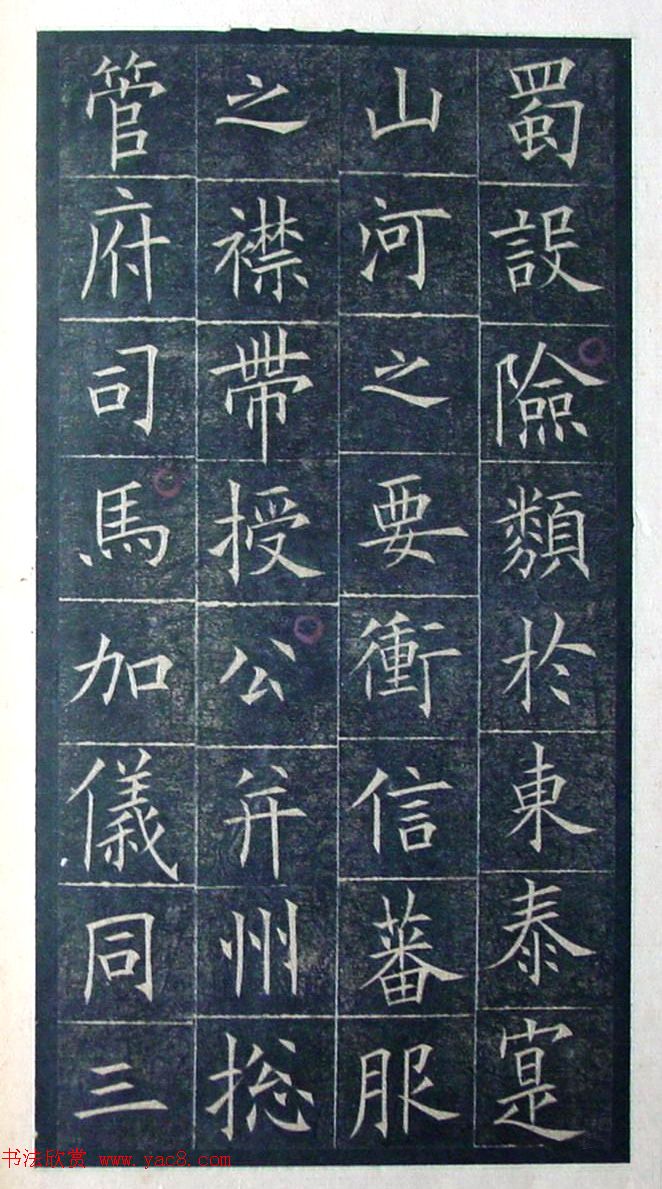 蜀設險類於東泰寔
山河之要衝信蕃服
之襟帶授公并州捴
管府司馬加儀同三
书法欣赏 www.yac8.com